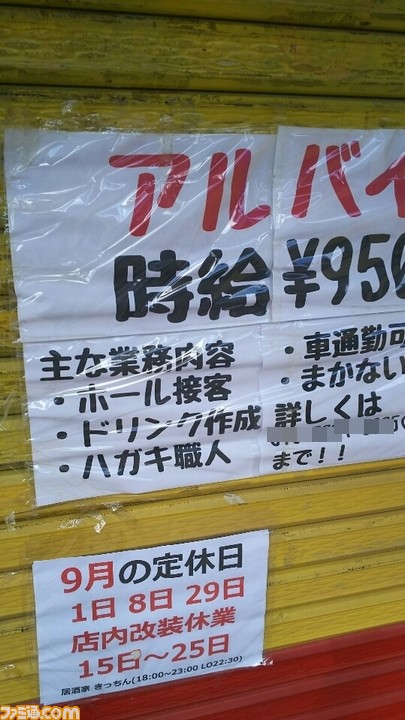 アルバイ
時給¥950
主な業務内容
・ホール接客
・ドリンク作成
・ハガキ職人
・車通勤可
・まかない
詳しくは
まで！！
9月の定休日
1日 8日 29日
店内改装休業
15日～25日
居酒家 きっちん(18:00~23:00 LO22:30)
ファミ通.com